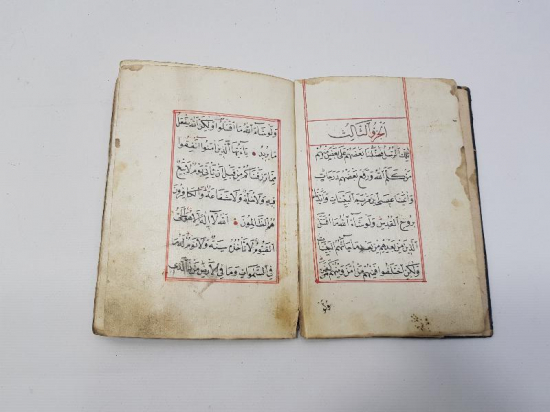 الجزؤ الثالث
تلك الرسل فضلنا بعضهم على بعض منهم
من كلم الله ورفع بعضهم درجات
وآتينا عيسى بن مريم البينات وايدناه
بروح القدس ولو شاء الله ما اقتتل
الذين من بعدهم من بعد ما جاءتهم البينات
ولكن اختلفوا فمنهم من آمن ومنهم من كفر
ولو شاء الله ما اقتتلوا ولكن الله يفعل
ما يريد يا ايها الذين امنوا انفقوا
مما رزقناكم من قبل ان ياتي يوم لا بيع
فيه ولا خلة ولا شفاعة والكافرون
هم الظالمون الله لا اله الا هو الحي
القيوم لا تأخذه سنة ولا نوم له ما
في السموات وما في الارض من ذا الذي